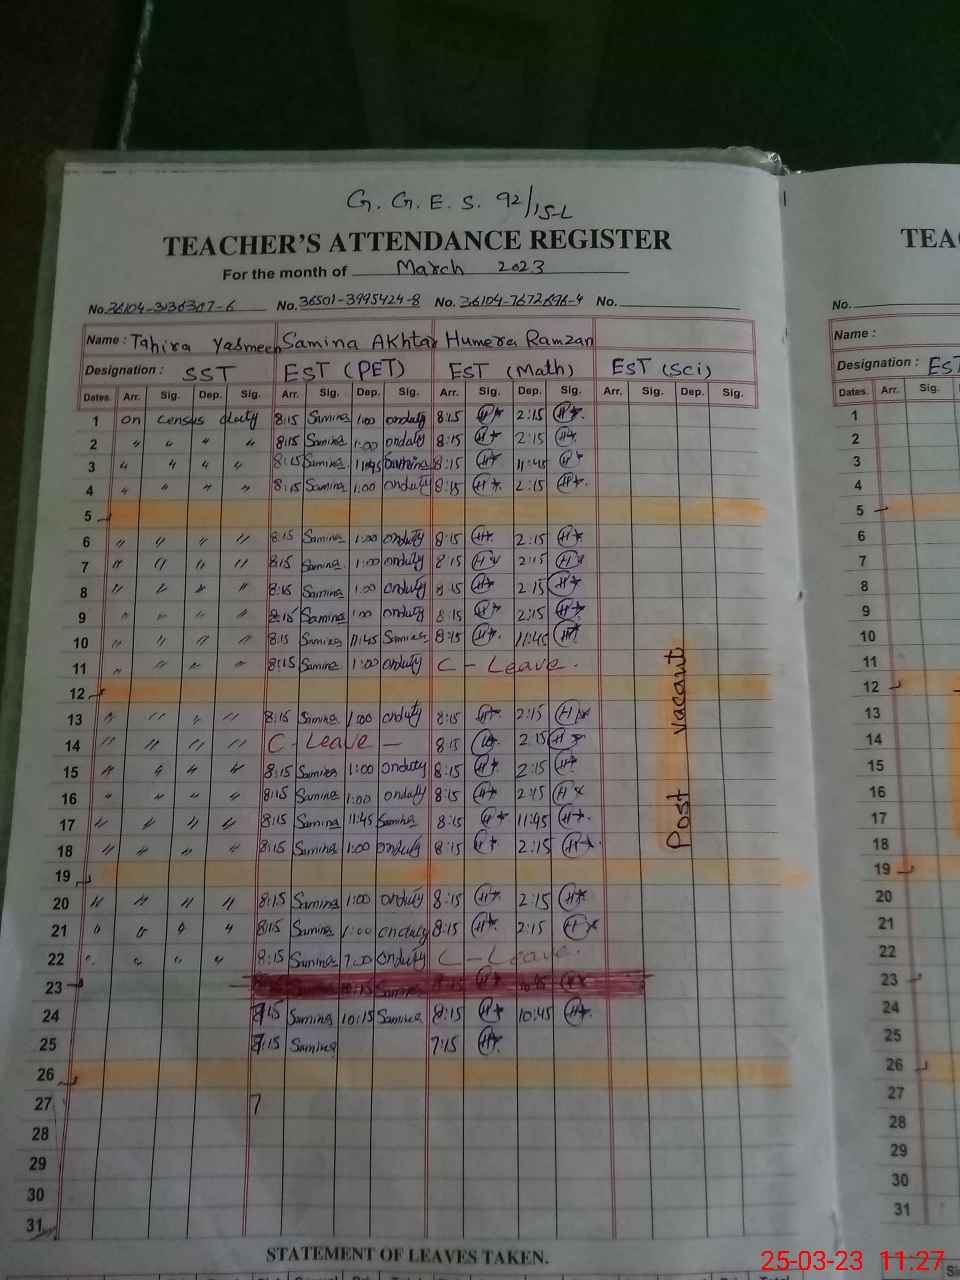 G. G. E. S. 92/15-L
TEACHER'S ATTENDANCE REGISTER TEA
For the month of March 2023
No. 36104-3136307-6 No. 36501-3995424-8 No. 36104-7672696-4 No. No.
Name : Tahira Yasmeen Samina Akhtar Humera Ramzan Name :
Designation : SST EST (PET) EST (Math) EST (Sci) Designation : EST
Dates. Arr. Sig. Dep. Sig. Arr. Sig. Dep. Sig. Arr. Sig. Dep. Sig. Arr. Sig. Dep. Sig. Dates. Arr. Sig. Dep.
1 on census duty 8:15 Samina 1:00 onduty 8:15 H 2:15 H 1
2 " " " " 8:15 Samina 1:00 onduty 8:15 H 2:15 H 2
3 " " " " 8:15 Samina 11:45 Samina 8:15 H 11:45 H 3
4 " " " " 8:15 Samina 1:00 onduty 8:15 H 2:15 H 4
5 5
6 " " " " 8:15 Samina 1:00 onduty 8:15 H 2:15 H 6
7 " " " " 8:15 Samina 1:00 onduty 8:15 H 2:15 H 7
8 " " " " 8:15 Samina 1:00 onduty 8:15 H 2:15 H 8
9 " " " " 8:15 Samina 1:00 onduty 8:15 H 2:15 H 9
10 " " " " 8:15 Samina 11:45 Samina 8:15 H 11:45 H 10
11 " " " " 8:15 Samina 1:00 onduty C - Leave. 11
12 12
13 " " " " 8:15 Samina 1:00 onduty 8:15 H 2:15 H 13
14 " " " " C - Leave - 8:15 H 2:15 H 14
15 " " " " 8:15 Samina 1:00 onduty 8:15 H 2:15 H 15
16 " " " " 8:15 Samina 1:00 onduty 8:15 H 2:15 H 16
17 " " " " 8:15 Samina 11:45 Samina 8:15 H 11:45 H 17
18 " " " " 8:15 Samina 1:00 onduty 8:15 H 2:15 H 18
Post vacant
19 19
20 " " " " 8:15 Samina 1:00 onduty 8:15 H 2:15 H 20
21 " " " " 8:15 Samina 1:00 onduty 8:15 H 2:15 H 21
22 " " " " 8:15 Samina 1:00 onduty C - Leave. 22
23 23
24 8:15 Samina 10:15 Samina 8:15 H 10:45 H 24
25 7:15 Samina 7:15 H 25
26 26
27 7 27
28 28
29 29
30 30
31 31
STATEMENT OF LEAVES TAKEN.
25-03-23 11:27